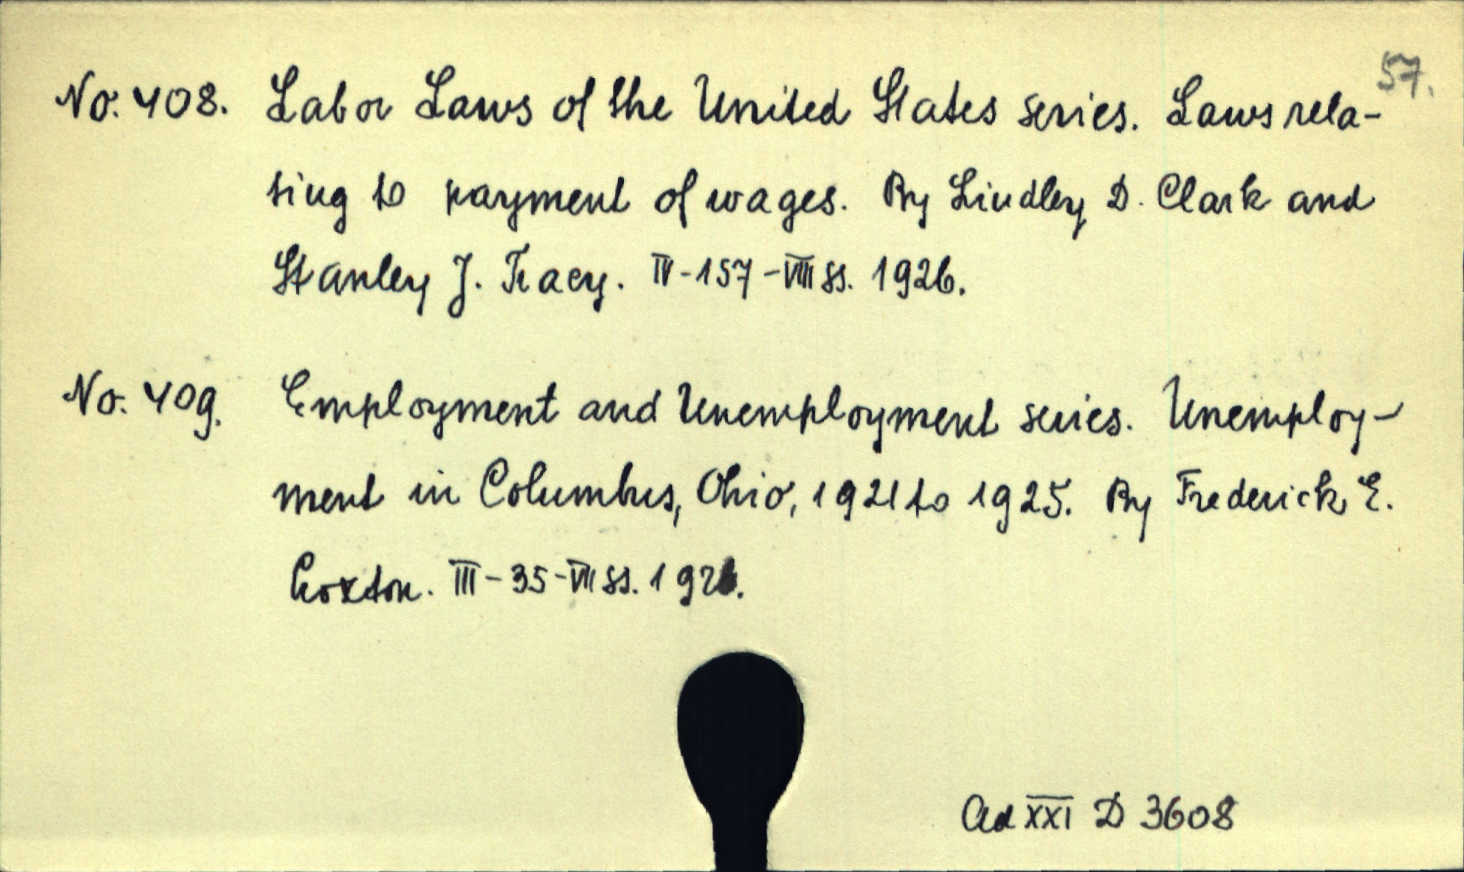 57.
No. 408. Labor Laws of the United States series. Laws rela-
ting to payment of wages. By Lindley D. Clark and
Stanley J. Tracy. IV-157-VIII ss. 1926.
No. 409. Employment and Unemployment series. Unemploy-
ment in Columbus, Ohio, 1921 to 1925. By Frederick E.
Croxton. III-35-VII ss. 1926.
Ad XXI D 3608